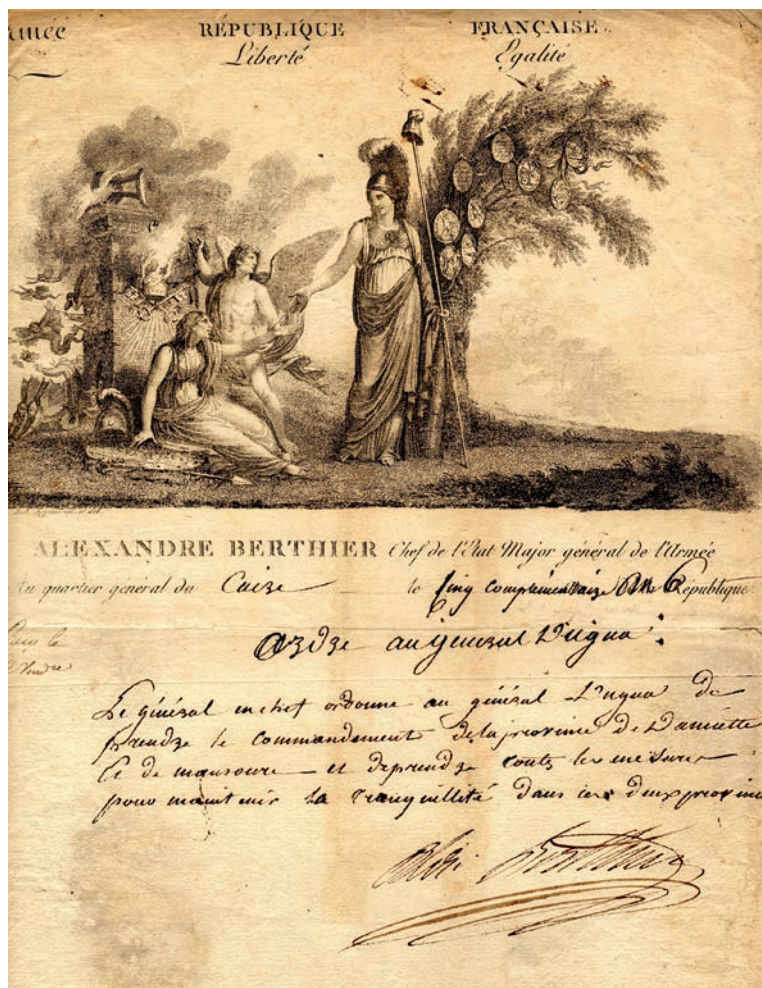 RÉPUBLIQUE FRANÇAISE.
Liberté Egalité
ALEXANDRE BERTHIER Chef de l'État Major général de l'Armée
quartier général du Caire le cinq complémentaire an 6 République
ordre au general Dugua.
Le général en chef ordonne au général Dugua de
prendre le commandement de la province de Damiette
et de mansoure et de prendre toutes les mesures
pour maintenir la tranquillité dans ces deux
Alex Berthier